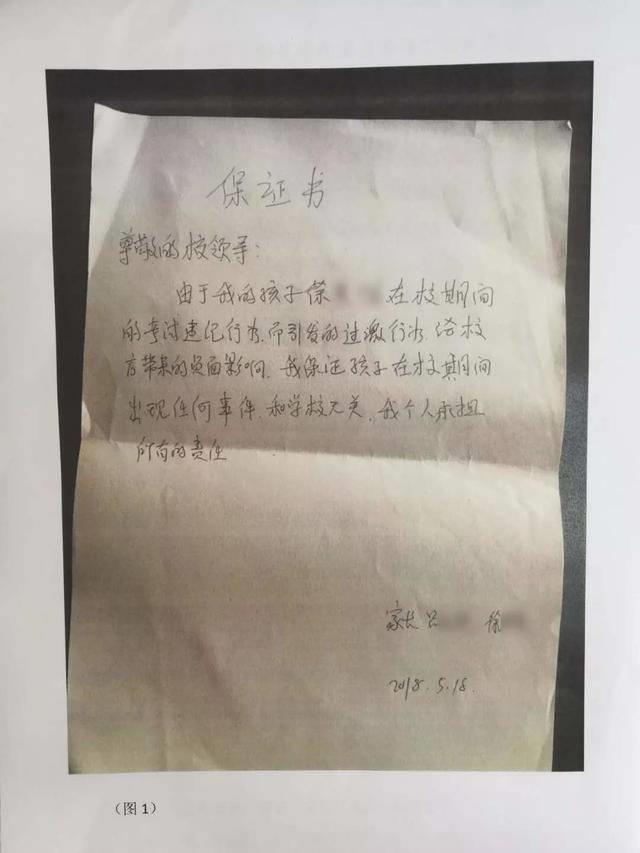 保证书
尊敬的校领导：
由于我的孩子徐 在校期间
的考试违纪行为，而引发的过激行为，给校
方带来的负面影响，我保证孩子在校期间
出现任何事件，和学校无关，我个人承担
所有的责任
家长 吕 徐
2018.5.18.
（图1）